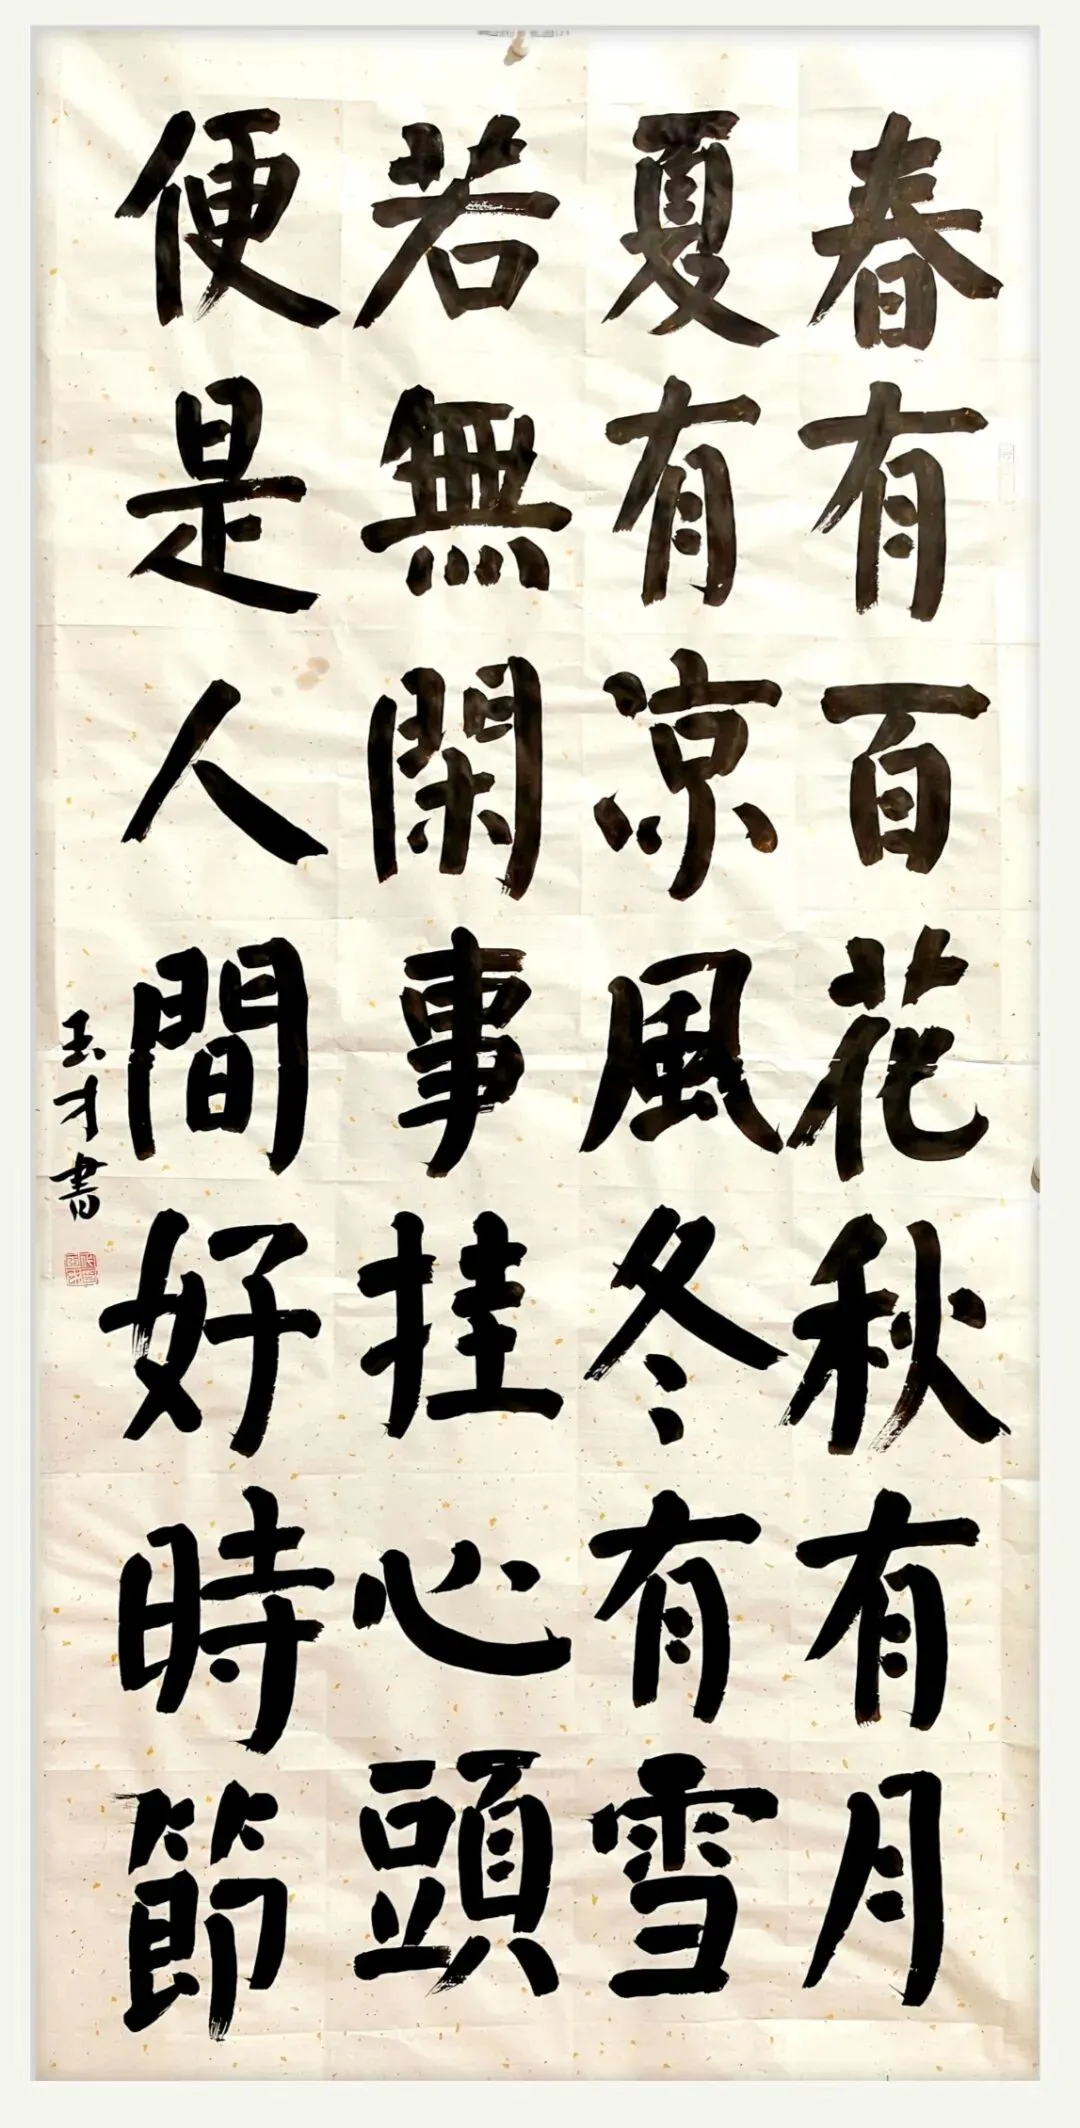 春有百花秋有月
夏有凉風冬有雪
若無閑事挂心頭
便是人間好時節
玉才書